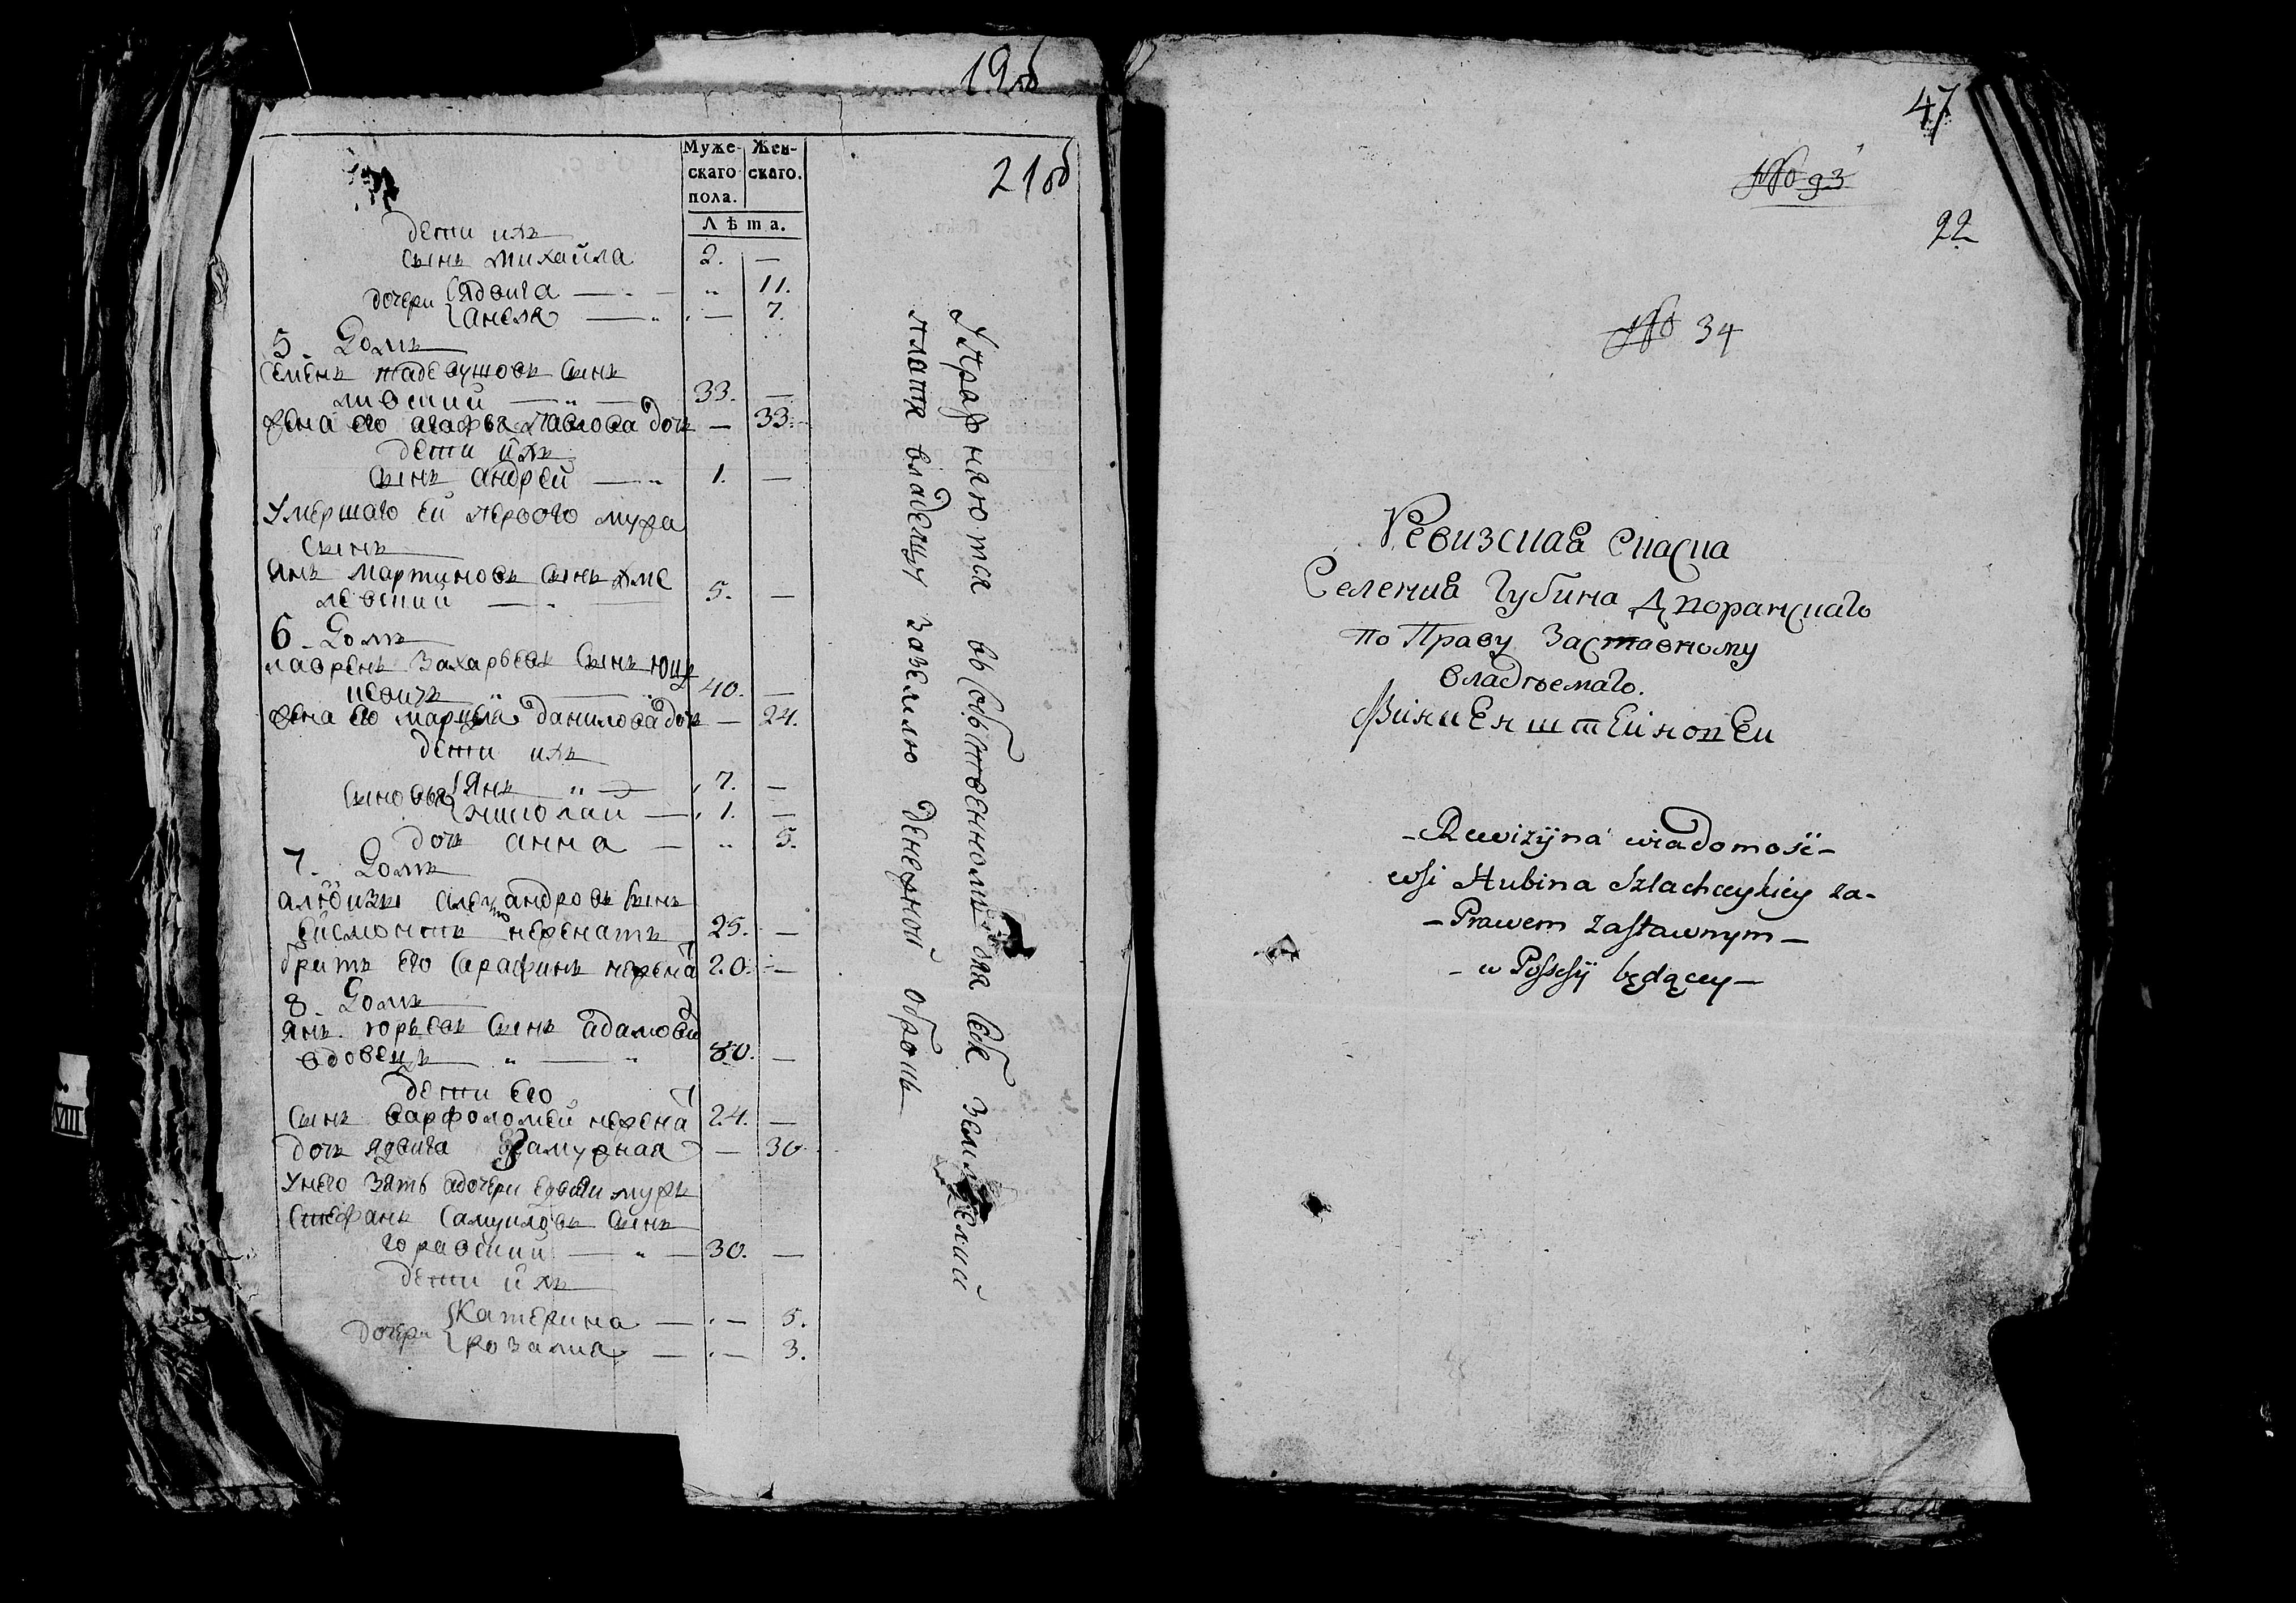 19об
21об
Муже- Жен-
скаго скаго.
пола.
Лѣта.
дети ихъ
сынъ михайла 2. —
дочери ядвига — „ 11.
анеля — „ — 7.
5. Домъ
семенъ тадеушовъ сынъ
33. —
жена его агафья павлова дочь — 33.
дети ихъ
сынъ андрей — 1. —
умершаго ей первого мужа
сынъ
янъ мартиновъ сынъ хме
левский — 5. —
6. Домъ
лаврень захарьевъ сынъ юц
кевичъ „ — „ 40. —
жена его марцеля данилова дочь — 24.
дети ихъ
сыновья янъ „ — 7. —
николай — 1. —
дочь анна — „ 5.
7. Домъ
александровъ сынъ
ейсмонтъ неженатъ 25. —
братъ его серафинъ неженат 20. —
8. Домъ
янъ юрьевъ сынъ адамович
вдовецъ „ — „ 80. —
дети его
сынъ варфоломей неженат 24. —
дочь ядвига замужная — 30
у него зять адочери едвиги мужъ
стефанъ самуиловъ сынъ
горавский — „ — 30. —
дети ихъ
дочери катерина — „ — 5.
розалия — „ — 3.
упражняются въ собственномъ для себя земледелий
платя владелцу за землю денежной оброкъ
47
No 93
22
No 34
Ревизская скаска
Селения Губина Дворянскаго
по Праву Заставному
владѣемаго.
Финкенштейновеи
- Rewizyjna wiadomość -
wsi Hubina Szlacheyckiey za-
- Prawem zastawnym -
- w Possesyi będącey -